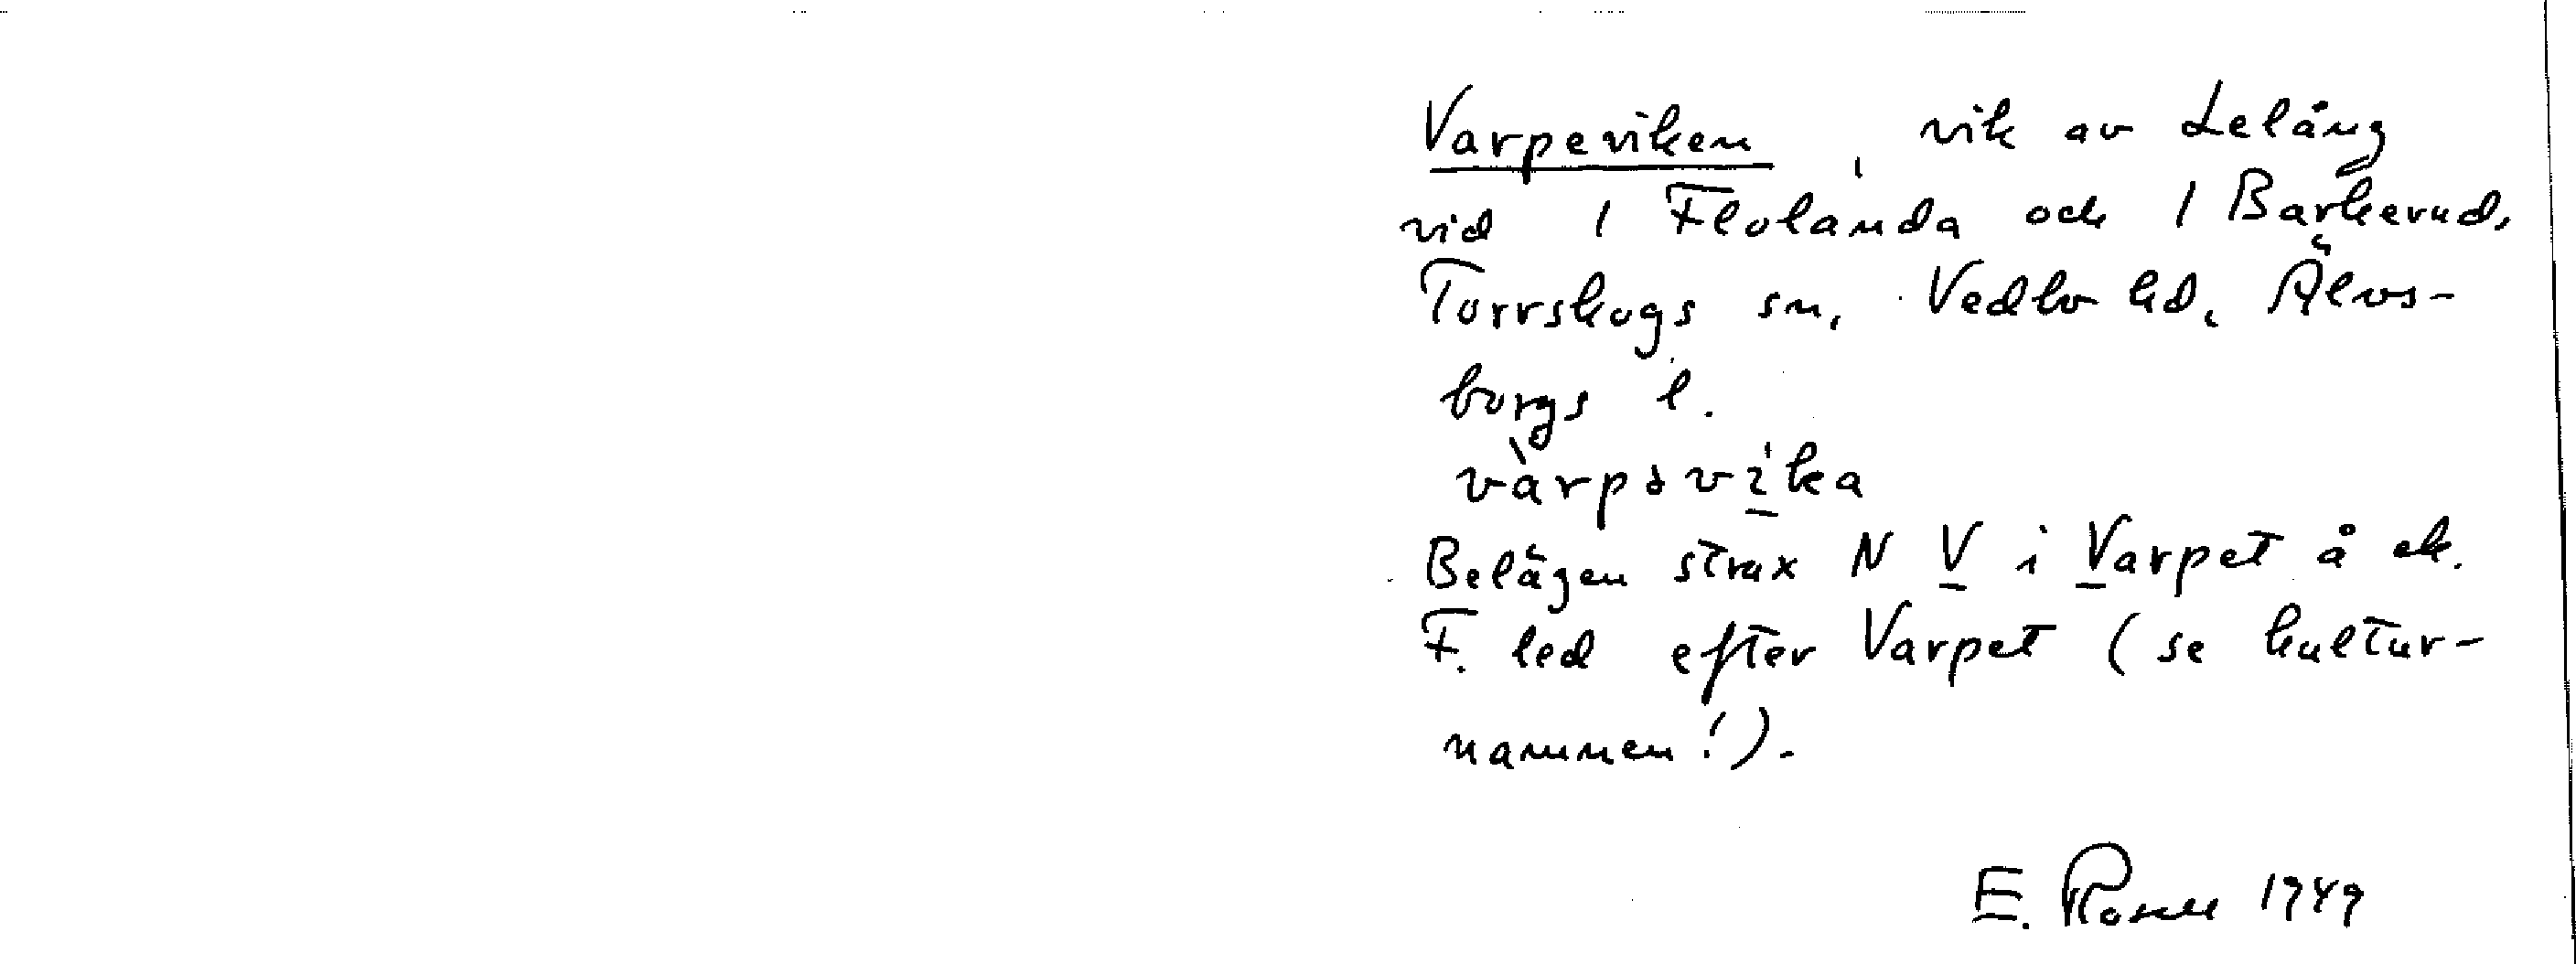 Varpeviken, vik av Lelång
vid 1 Flolanda och 1 Barkerud,
Torrskogs sn, Vedbo hd, Älvs-
borgs l.
vàrpəvika
Belägen strax N V i Varpet å ek.
F. led efter Varpet (se kultur-
namnen!).
E. Rosell 1949